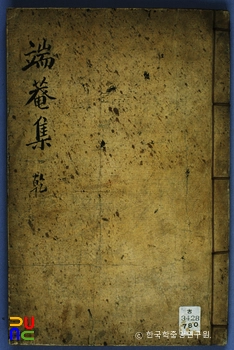 端菴集 乾
古
3428
780
© 한국학중앙연구원